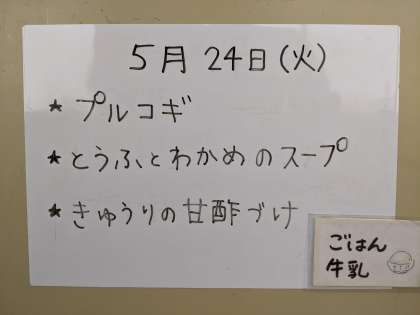 5月 24日(火)
★ プルコギ
★ とうふとわかめのスープ
★ きゅうりの甘酢づけ
ごはん
牛乳